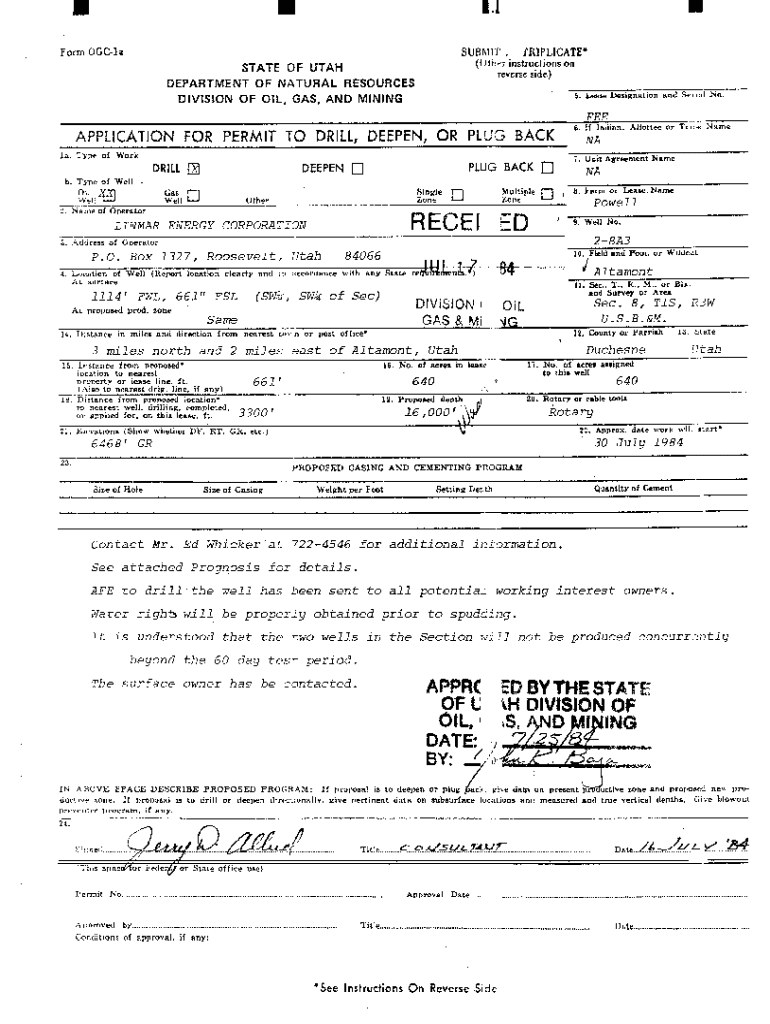 Form OGC-1a
SUBMIT TRIPLICATE*
(Other instructions on
reverse side)
STATE OF UTAH
DEPARTMENT OF NATURAL RESOURCES
DIVISION OF OIL, GAS, AND MINING
5. Lease Designation and Serial No.
FEE
APPLICATION FOR PERMIT TO DRILL, DEEPEN, OR PLUG BACK
6. If Indian, Allottee or Tribe Name
NA
1a. Type of Work
DRILL X DEEPEN PLUG BACK
7. Unit Agreement Name
NA
b. Type of Well
Oil Well XX Gas Well Other Single Zone Multiple Zone
8. Farm or Lease Name
Powell
2. Name of Operator
LINMAR ENERGY CORPORATION
RECEI ED
9. Well No.
2-8A3
3. Address of Operator
P.O. Box 1327, Roosevelt, Utah 84066
10. Field and Pool, or Wildcat
Altamont
4. Location of Well (Report location clearly and in accordance with any State requirements.*)
At surface
1114' FWL, 661" FSL (SW¼, SW¼ of Sec)
JUL 17 84
11. Sec., T., R., M., or Blk.
and Survey or Area
Sec. 8, T1S, R3W
U.S.B.&M.
At proposed prod. zone
Same
DIVISION OIL
GAS & MI NG
14. Distance in miles and direction from nearest town or post office*
3 miles north and 2 miles east of Altamont, Utah
12. County or Parrish 13. State
Duchesne Utah
15. Distance from proposed*
location to nearest
property or lease line, ft.
(Also to nearest drlg. line, if any)
661'
16. No. of acres in lease
640
17. No. of acres assigned
to this well
640
18. Distance from proposed location*
to nearest well, drilling, completed,
or applied for, on this lease, ft.
3300'
19. Proposed depth
16,000'
20. Rotary or cable tools
Rotary
21. Elevations (Show whether DF, RT, GR, etc.)
6468' GR
22. Approx. date work will start*
30 July 1984
23.
PROPOSED CASING AND CEMENTING PROGRAM
Size of Hole Size of Casing Weight per Foot Setting Depth Quantity of Cement
Contact Mr. Ed Whicker at 722-4546 for additional information.
See attached Prognosis for details.
AFE to drill the well has been sent to all potential working interest owners.
Water rights will be properly obtained prior to spudding.
It is understood that the two wells in the Section will not be produced concurrently
beyond the 60 day test period.
The surface owner has be contacted.
APPRO ED BY THE STATE
OF U AH DIVISION OF
OIL, S, AND MINING
DATE: 7/25/84
BY: John R. Baza
IN ABOVE SPACE DESCRIBE PROPOSED PROGRAM: If proposal is to deepen or plug back, give data on present productive zone and proposed new pro-
ductive zone. If proposal is to drill or deepen directionally, give pertinent data on subsurface locations and measured and true vertical depths. Give blowout
preventer program, if any.
24.
Signed Jerry D. Allred Title CONSULTANT Date 16 JULY '84
(This space for Federal or State office use)
Permit No. Approval Date
Approved by Title Date
Conditions of approval, if any:
*See Instructions On Reverse Side